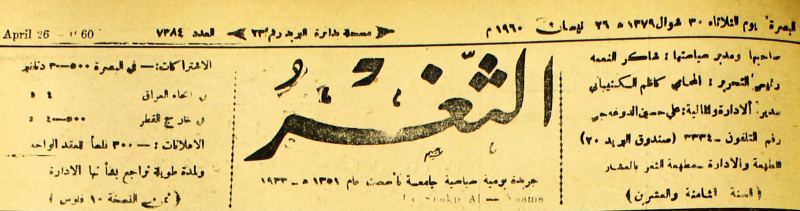 البصرة يوم الثلاثاء ٣٠ شوال ١٣٧٩ ه ٢٦ نيسان ١٩٦٠ م
مسجلة بدائرة البريد برقم ٢٣
العدد ٧٣٨٤
April 26 - 60
صاحبها ومدير سياستها: شاكر النعمه
رئيس التحرير: المحامي كاظم
مدير الادارة والمالية: علي حسين
رقم التلفون - ٣٣٣٤ (صندوق البريد ٢٠)
المطبعة والادارة - مطبعة الثغر بالعشار
(السنة الثامنة والعشرين)
الثغر
جريدة يومية سياسية جامعة تأسست عام ١٣٥١ ه - ١٩٣٣
الاشتراكات: - في البصرة ٥٠٠-٣ دنانير
انحاء العراق ٤
خارج القطر ٥٠٠-٤
الاعلانات: - ٣٠٠ فلساً للعقد الواحد
ولمدة طويلة تراجع بشأنها الادارة
(ثمن النسخة ١٠ فلوس)